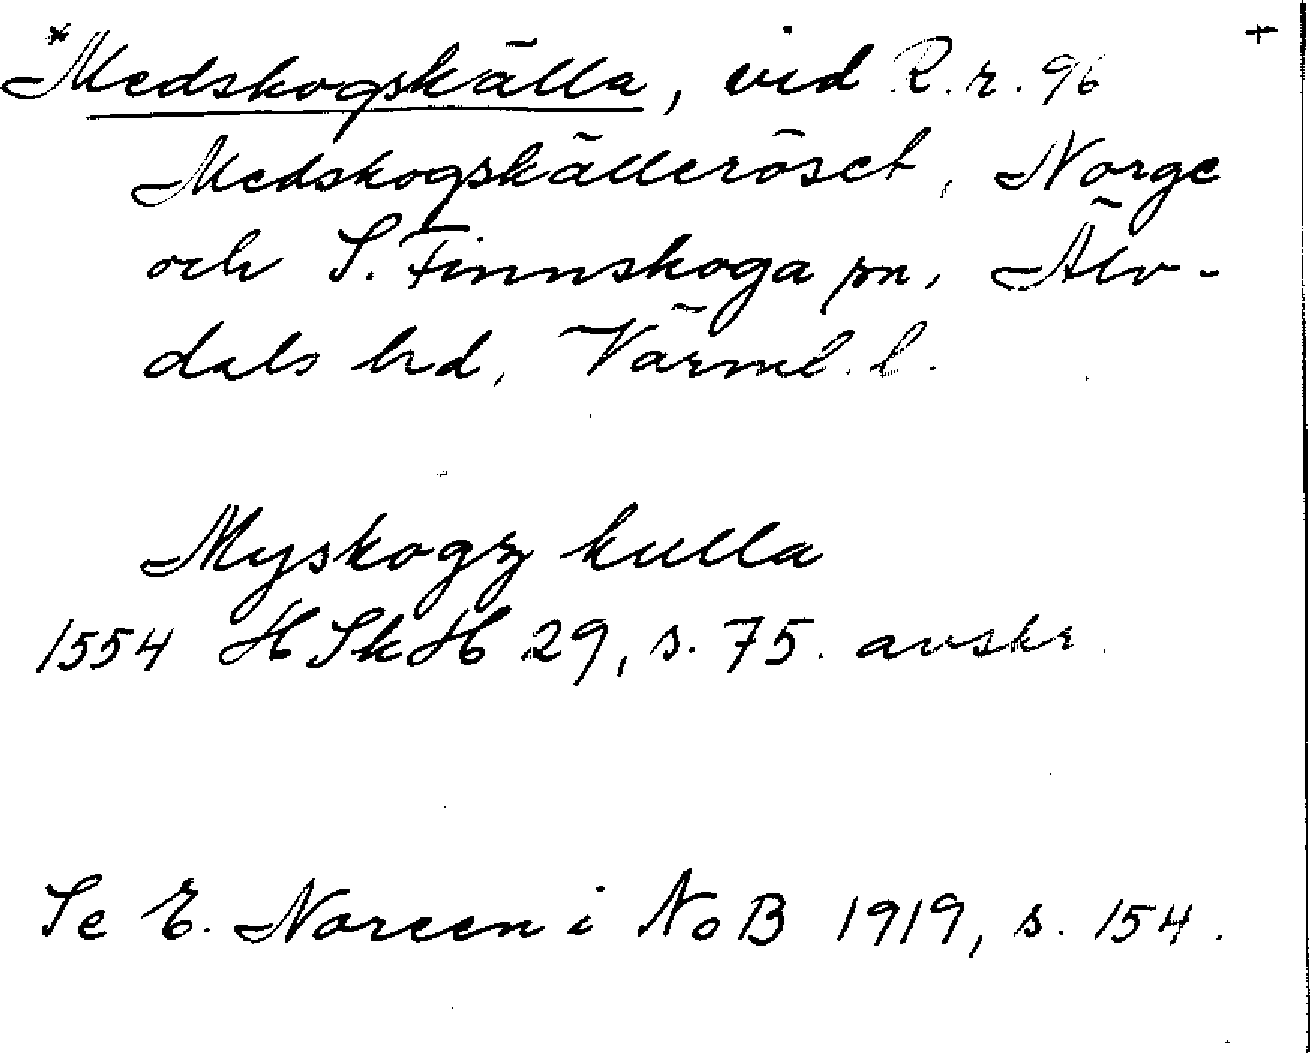 *Medskogskälla, vid R.r. 96 +
Medskogskälleröset, Norge
och S. Finnskoga sn, Älv-
dals hd, Värml. l.
Myskogz kulla
1554 HSkH 29, s. 75. avskr.
Se E. Noreen i NoB 1919, s. 154.